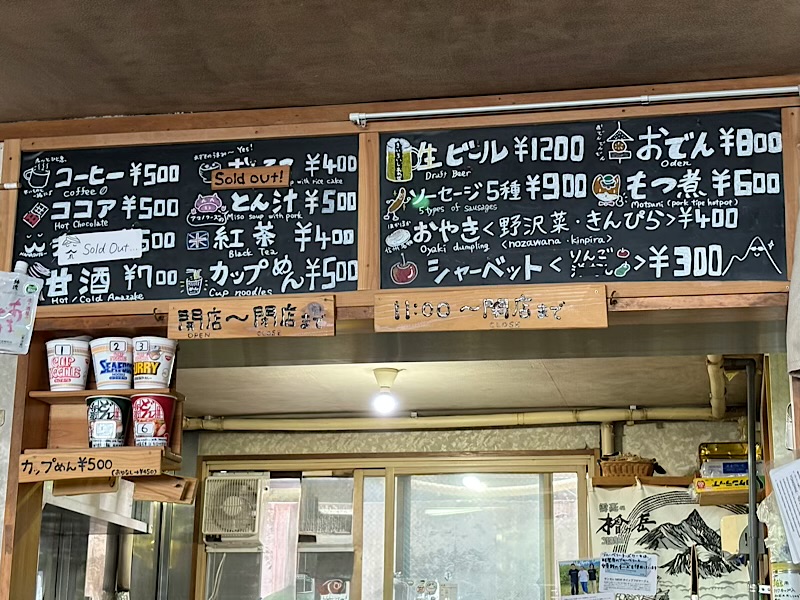 コーヒー ¥500
coffee
ココア ¥500
Hot Chocolate
Sold Out...
甘酒 ¥700
Hot / Cold Amazake
¥400
Sold out!
with rice cake
とん汁 ¥500
Miso soup with pork
紅茶 ¥400
Black Tea
カップめん ¥500
Cup noodles
生ビール ¥1200
Draft Beer
ソーセージ5種 ¥900
5 types of Sausages
おやき<野沢菜・きんぴら> ¥400
Oyaki dumpling <nozawana・kinpira>
シャーベット < りんご > ¥300
おでん ¥800
Oden
もつ煮 ¥600
Motsuni (pork tips hotpot)
開店〜閉店まで
OPEN CLOSE
11:00〜閉店まで
CLOSE
1 2 3
CUP NOODLE
SEAFOOD
NOODLE
CURRY
どん兵衛
6
カップめん ¥500